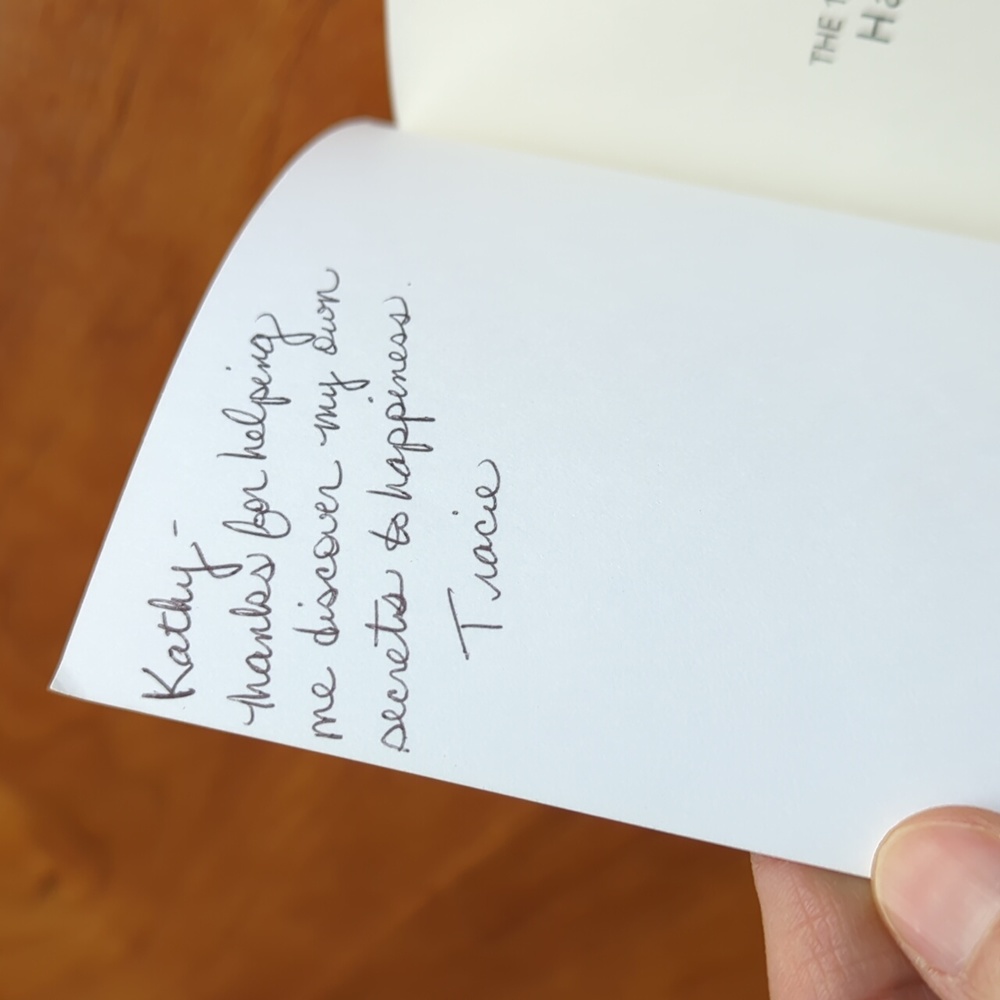 Kathy-
Thanks for helping
me discover my own
secrets to happiness.
Tracie
THE